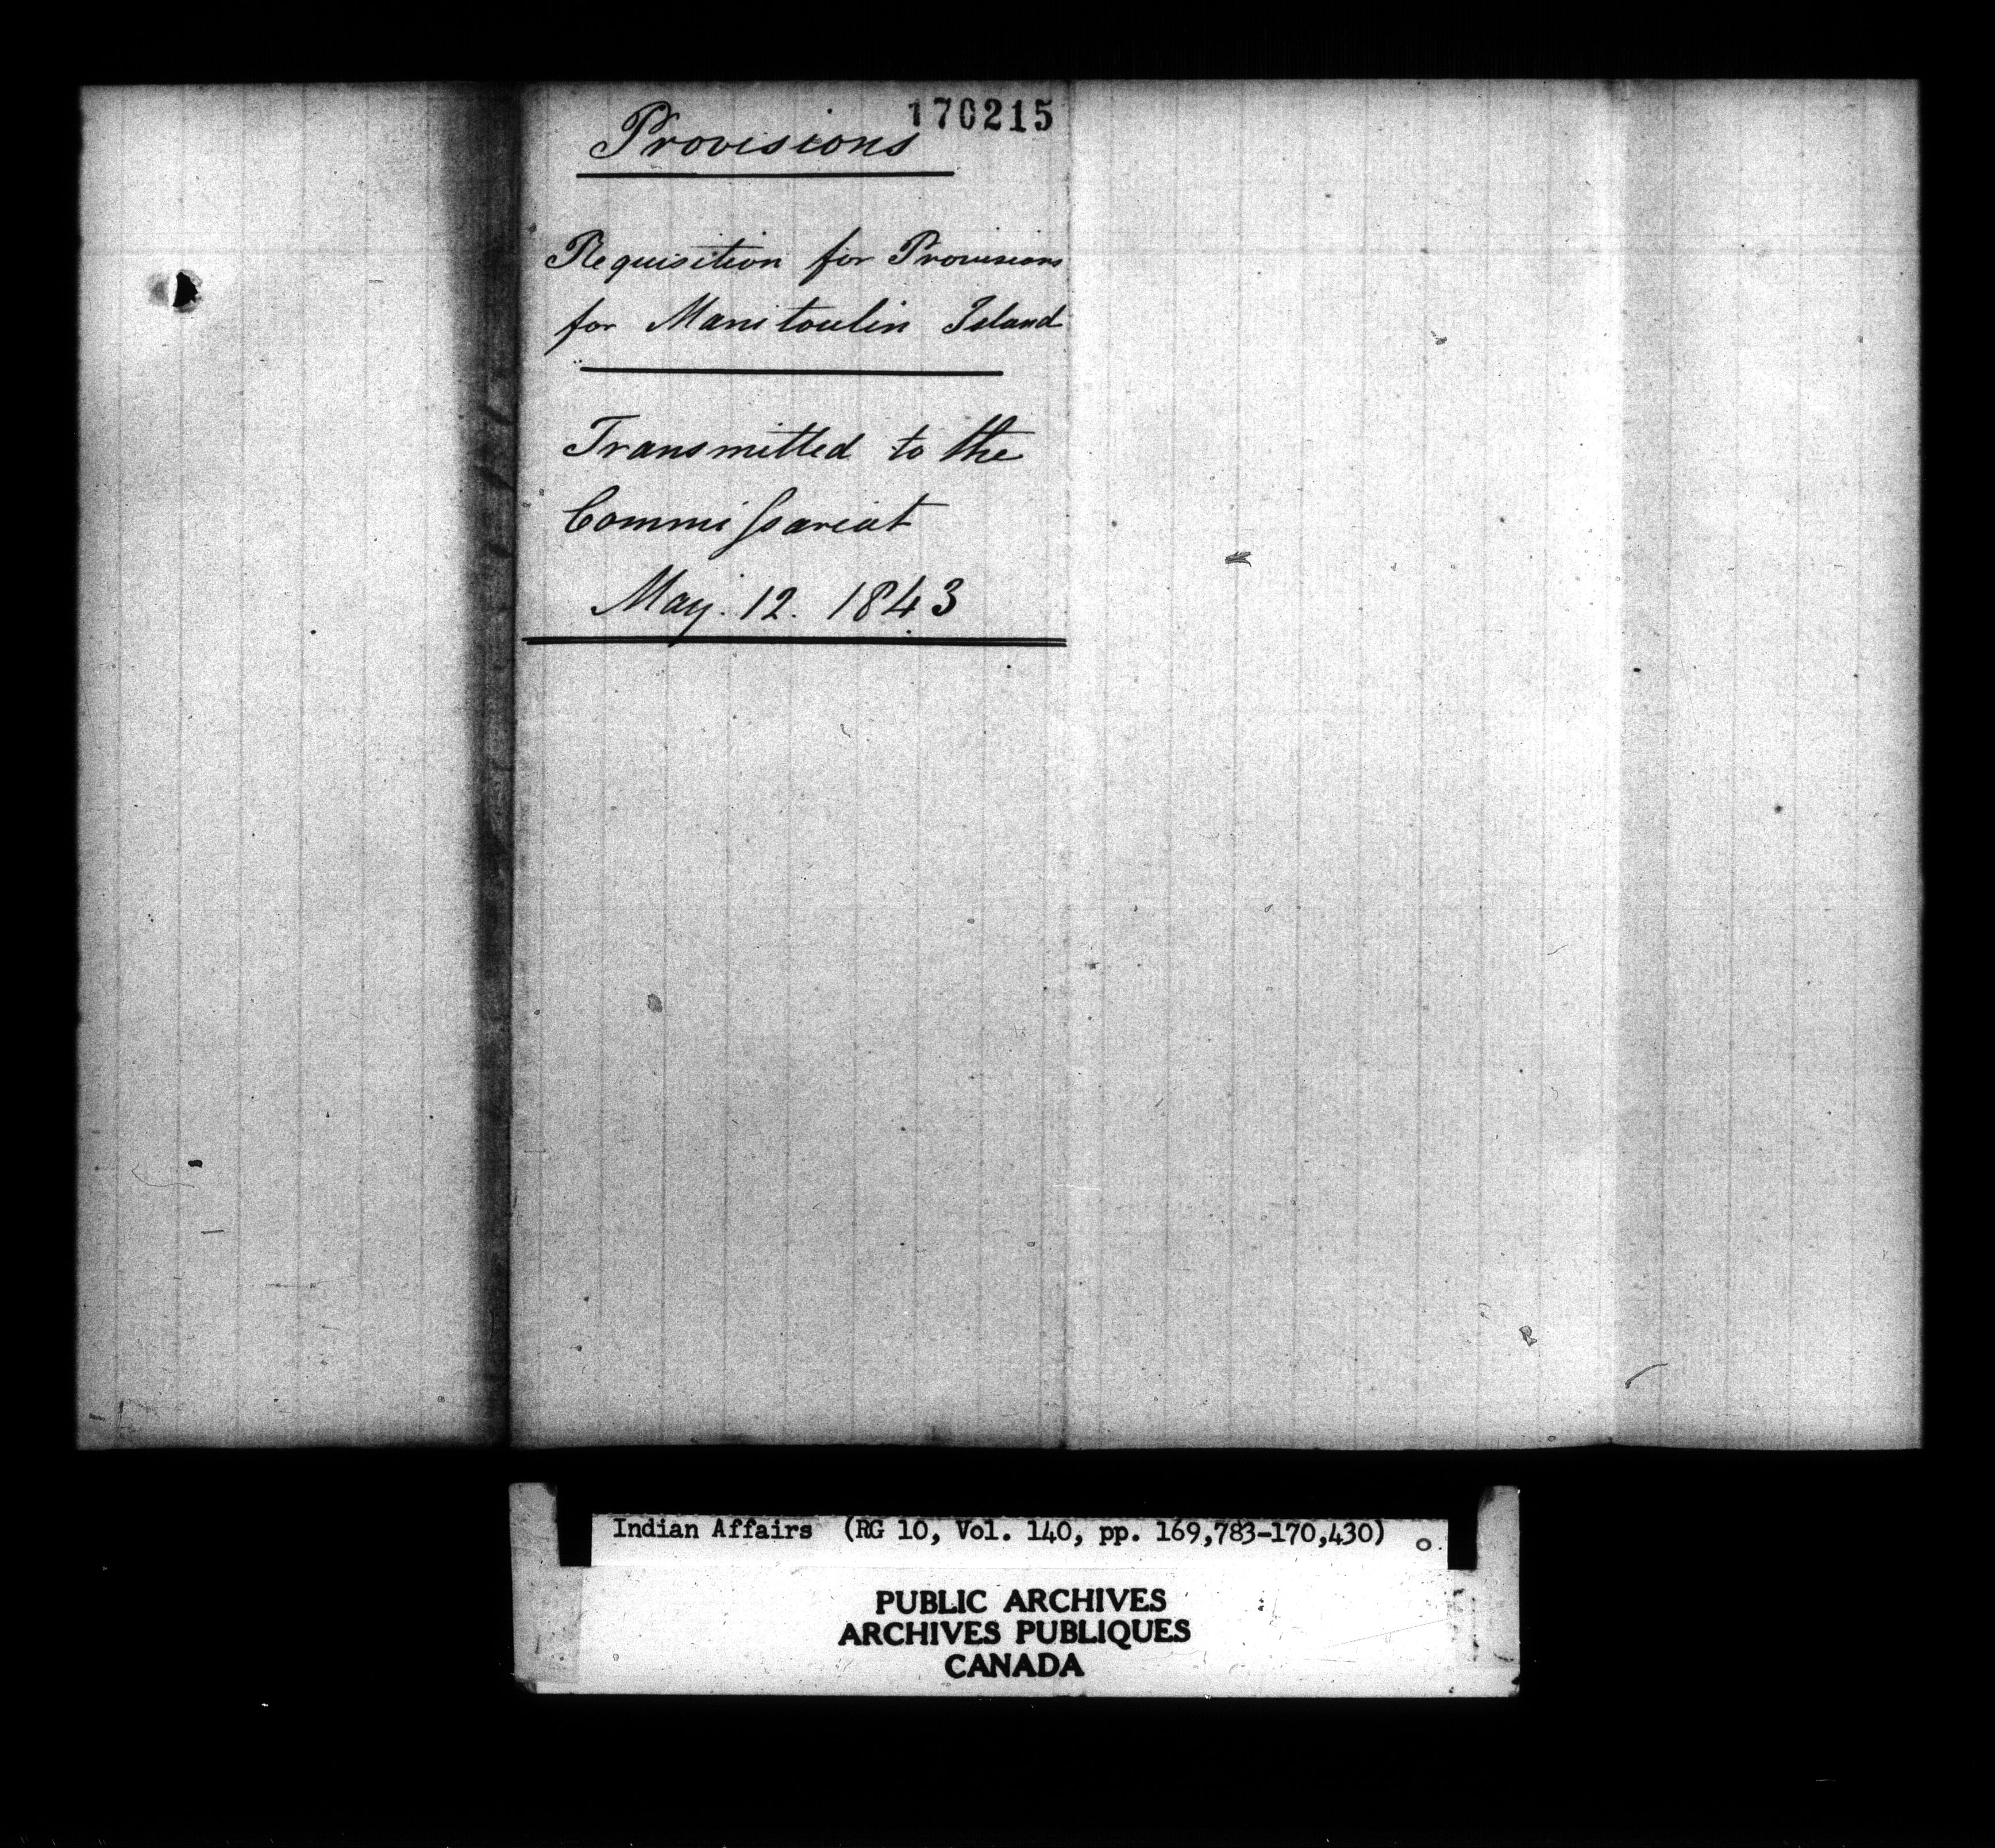 170215
Provisions
Requisition for Provisions
for Manitoulin Island
Transmitted to the
Commiſsariat
May. 12. 1843
Indian Affairs (RG 10, Vol. 140, pp. 169,783-170,430)
PUBLIC ARCHIVES
ARCHIVES PUBLIQUES
CANADA